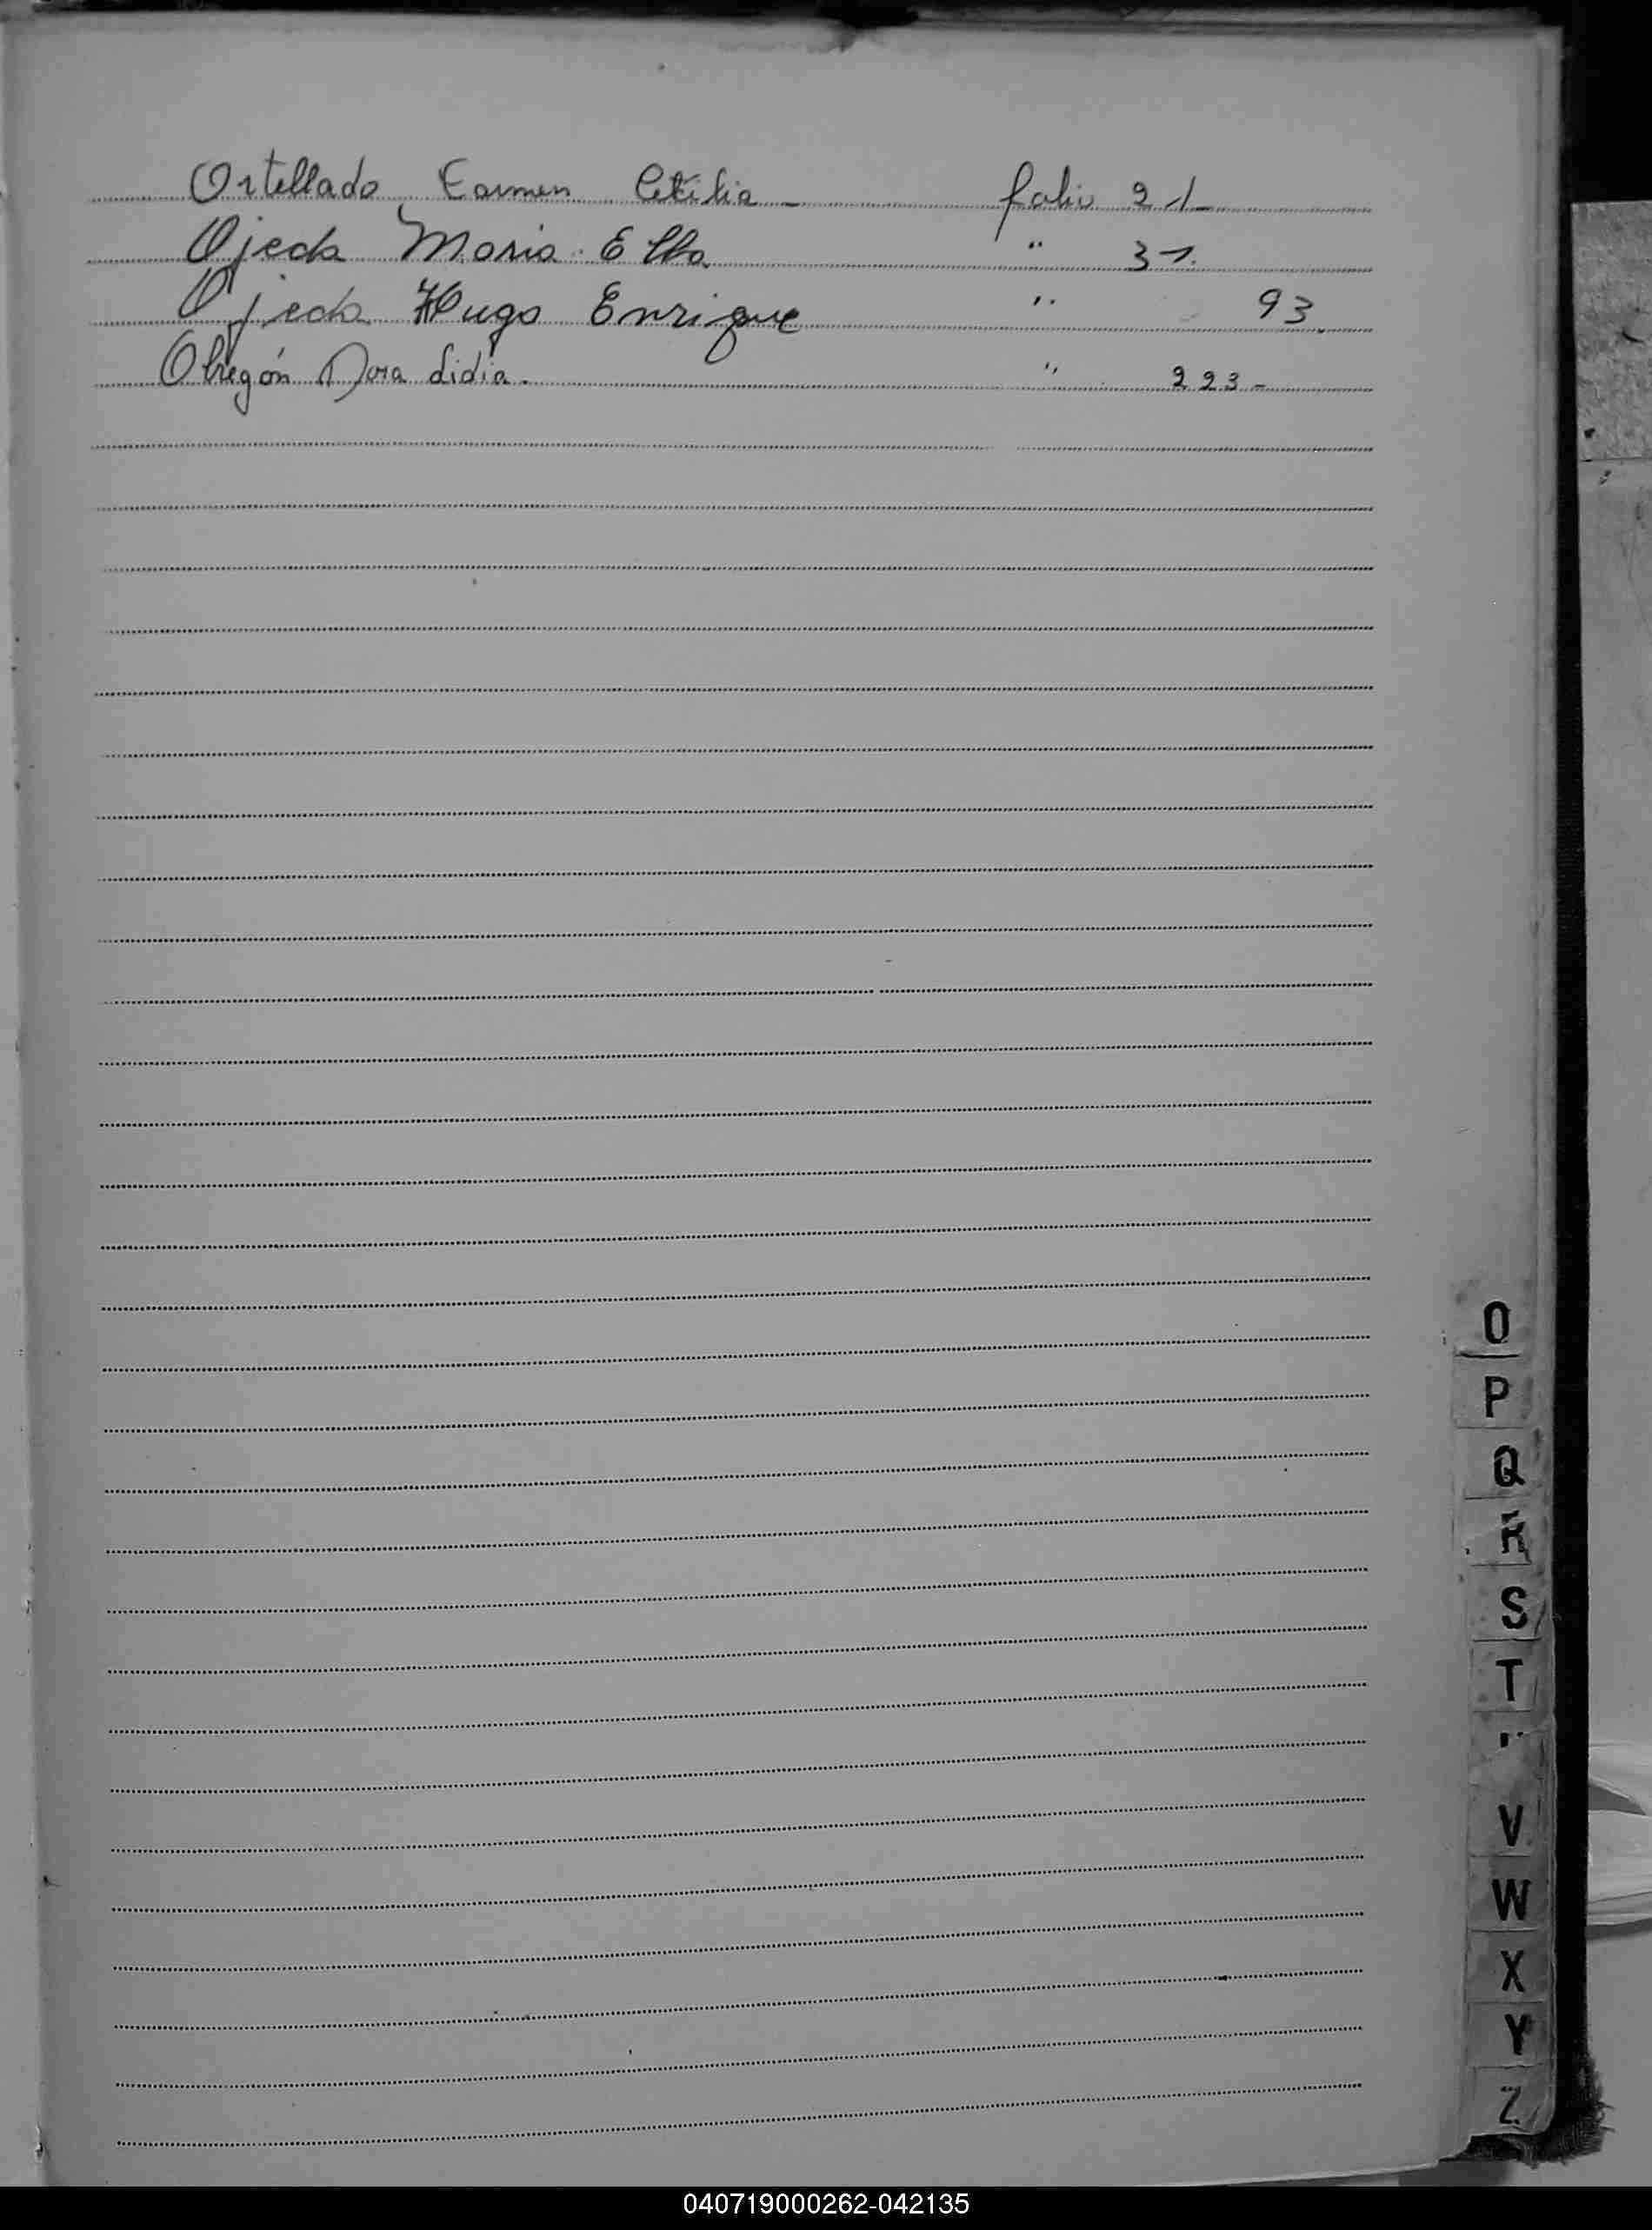 Ortellado Carmen Cecilia - folio 21-
Ojeda Maria Elba " 31.
Ojeda Hugo Enrique " 93.
Obregón Dora Lidia. " 223-
O
P
Q
R
S
T
V
W
X
Y
Z
040719000262-042135